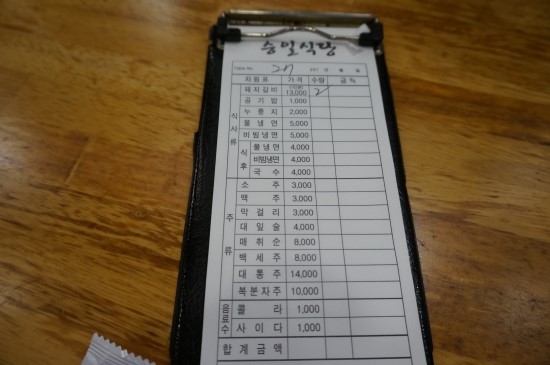 숭일식당
Table No. 201 년 월 일
차림표 가격 수량 금액
식사류
돼지갈비 13,000 2
공기밥 1,000
누룽지 2,000
물냉면 5,000
비빔냉면 5,000
식후
물냉면 4,000
비빔냉면 4,000
국수 4,000
주류
소주 3,000
맥주 3,000
막걸리 3,000
대잎술 4,000
매취순 8,000
백세주 8,000
대통주 14,000
복분자주 10,000
음료수
콜라 1,000
사이다 1,000
합계금액